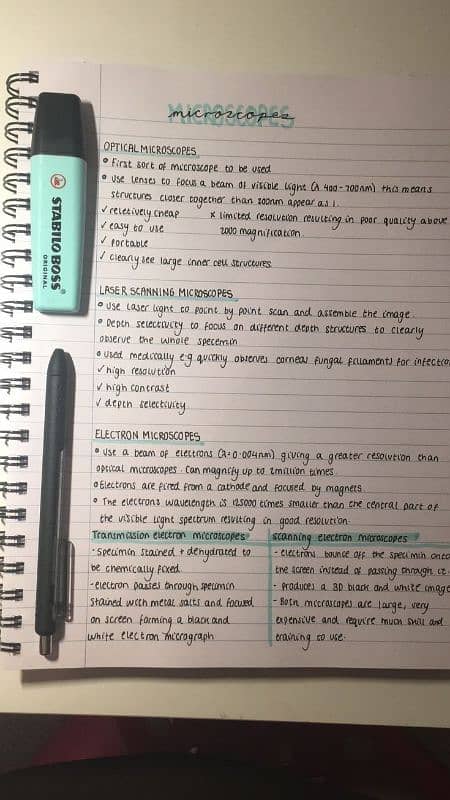 microscopes
MICROSCOPES
STABILO BOSS
ORIGINAL
OPTICAL MICROSCOPES
• First sort of microscope to be used
• Use lenses to focus a beam of visible light (λ 400-700nm) this means
structures closer together than 200nm appear as 1.
✓ relatively cheap × limited resolution resulting in poor quality above
✓ easy to use 2000 magnification.
✓ Portable
✓ clearly see large inner cell structures
LASER SCANNING MICROSCOPES
• Use laser light to point by point scan and assemble the image.
• Depth selectivity to focus on different depth structures to clearly
observe the whole specimin
• Used medically e.g quickly observes corneas fungal filaments for infectio
✓ high resolution
✓ high contrast
✓ depth selectivity
ELECTRON MICROSCOPES
• Use a beam of electrons (λ=0.004nm) giving a greater resolution than
optical microscopes. Can magnify up to 2million times.
• Electrons are fired from a cathode and focused by magnets.
• The electrons wavelength is 125000 times smaller than the central part of
the visible light spectrum resulting in good resolution.
Transmission electron microscopes
- Specimin stained + dehydrated to
be chemically fixed.
- electron passes through specimin
stained with metal salts and focused
on screen forming a black and
white electron micrograph
scanning electron microscopes
- electrons bounce off the specimin onto
the screen instead of passing through it.
- Produces a 3D black and white image
- Both microscopes are large, very
expensive and require much skill and
training to use.